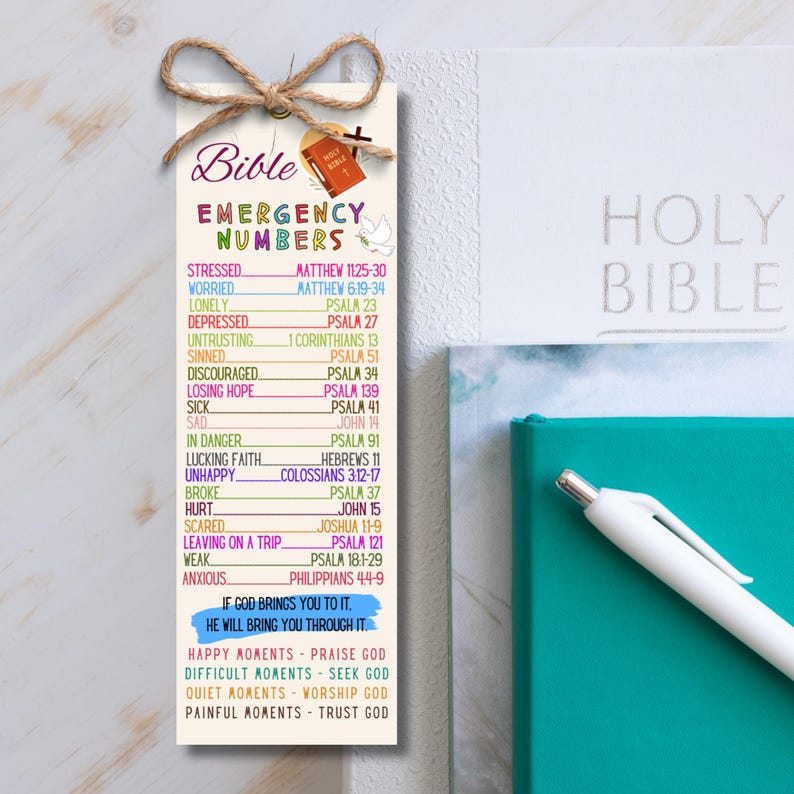 Bible
HOLY
BIBLE
EMERGENCY
NUMBERS
STRESSED MATTHEW 11:25-30
WORRIED MATTHEW 6:19-34
LONELY PSALM 23
DEPRESSED PSALM 27
UNTRUSTING 1 CORINTHIANS 13
SINNED PSALM 51
DISCOURAGED PSALM 34
LOSING HOPE PSALM 139
SICK PSALM 41
SAD JOHN 14
IN DANGER PSALM 91
LUCKING FAITH HEBREWS 11
UNHAPPY COLOSSIANS 3:12-17
BROKE PSALM 37
HURT JOHN 15
SCARED JOSHUA 1:1-9
LEAVING ON A TRIP PSALM 121
WEAK PSALM 18:1-29
ANXIOUS PHILIPPIANS 4:4-9
IF GOD BRINGS YOU TO IT,
HE WILL BRING YOU THROUGH IT.
HAPPY MOMENTS - PRAISE GOD
DIFFICULT MOMENTS - SEEK GOD
QUIET MOMENTS - WORSHIP GOD
PAINFUL MOMENTS - TRUST GOD
HOLY
BIBLE